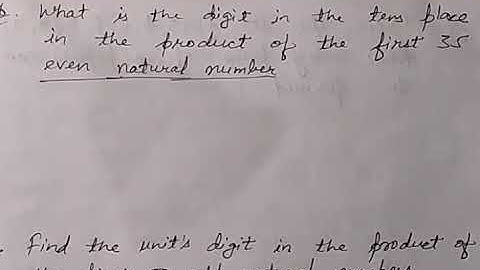 Q. What is the digit in the tens place
in the product of the first 35
even natural number
. Find the unit's digit in the product of